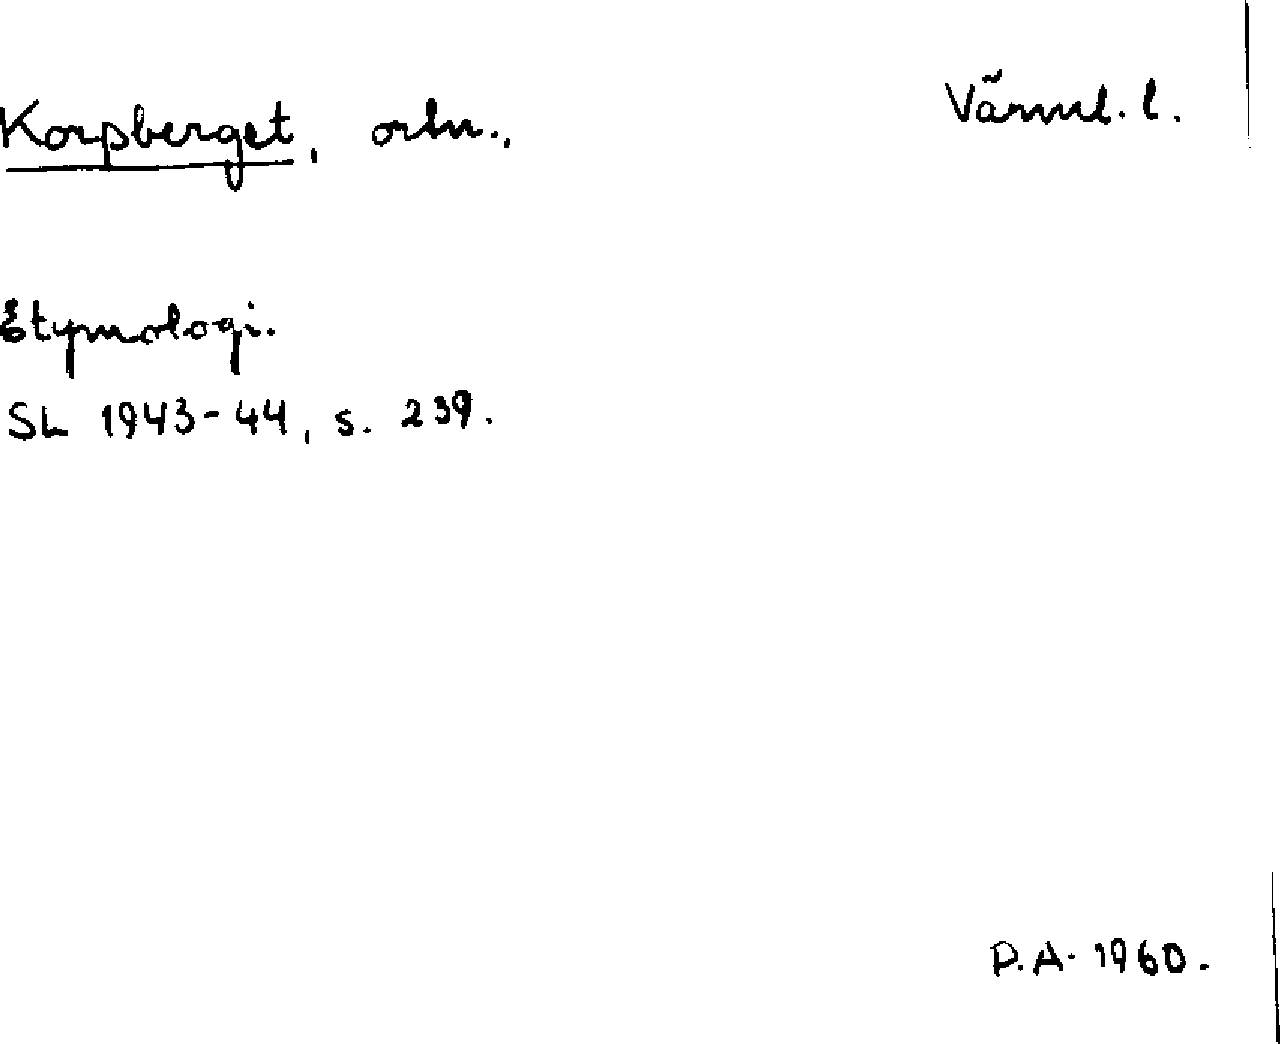 Korpberget, ortn., Värml. l.
Etymologi.
SL 1943-44, s. 239.
P.A. 1960.